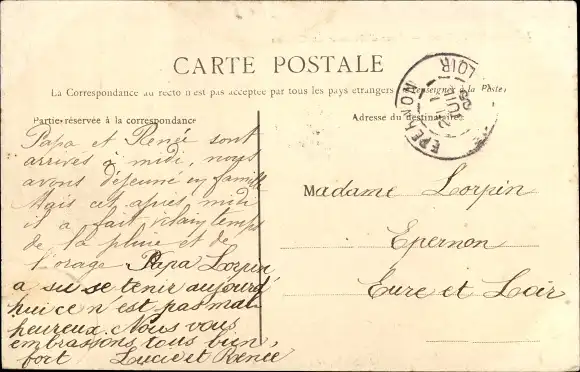 CARTE POSTALE
La Correspondance au recto n'est pas acceptée par tous les pays étrangers (se renseigner à la Poste)
Partie réservée à la correspondance
Papa et Renée sont
arrivés à midi, nous
avons déjeuné en famille
Mais cet après midi
il a fait vilain temps
de la pluie et de
l'orage Papa Lorpin
a su se tenir aujourd'
hui ce n'est pas mal
heureux. Nous vous
embrassons tous bien,
fort Lucie et Renée
Adresse du destinataire
Madame Lorpin
Epernon
Eure et Loir
EPERNON
LOIR